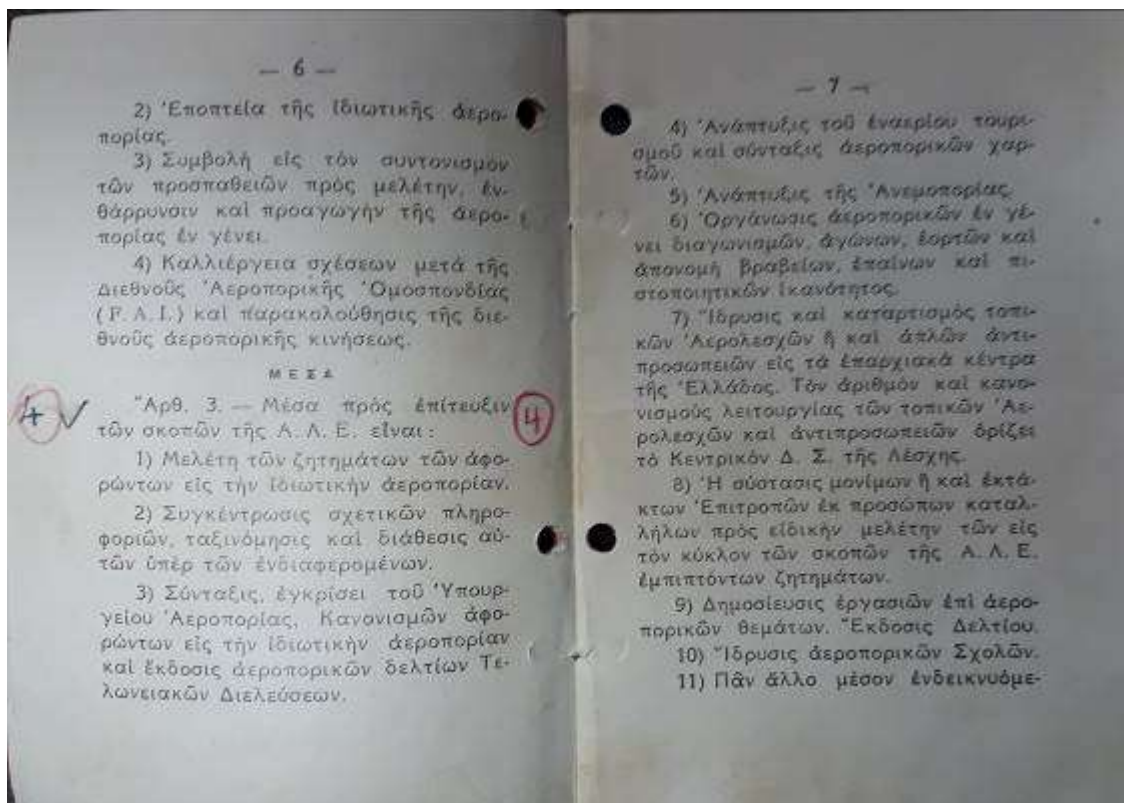 — 6 —
2) Ἐποπτεία τῆς ἰδιωτικῆς ἀερο-
πορίας.
3) Συμβολὴ εἰς τὸν συντονισμὸν
τῶν προσπαθειῶν πρὸς μελέτην, ἐν-
θάρρυνσιν καὶ προαγωγὴν τῆς ἀερο-
πορίας ἐν γένει.
4) Καλλιέργεια σχέσεων μετὰ τῆς
Διεθνοῦς Ἀεροπορικῆς Ὁμοσπονδίας
(F. A. I.) καὶ παρακολούθησις τῆς διε-
θνοῦς ἀεροπορικῆς κινήσεως.
ΜΕΣΑ
4 ✓ Ἄρθ. 3. — Μέσα πρὸς ἐπίτευξιν 4
τῶν σκοπῶν τῆς Α. Λ. Ε. εἶναι :
1) Μελέτη τῶν ζητημάτων τῶν ἀφο-
ρώντων εἰς τὴν ἰδιωτικὴν ἀεροπορίαν.
2) Συγκέντρωσις σχετικῶν πληρο-
φοριῶν, ταξινόμησις καὶ διάθεσις αὐ-
τῶν ὑπὲρ τῶν ἐνδιαφερομένων.
3) Σύνταξις, ἐγκρίσει τοῦ Ὑπουρ-
γείου Ἀεροπορίας, Κανονισμῶν ἀφο-
ρώντων εἰς τὴν ἰδιωτικὴν ἀεροπορίαν
καὶ ἔκδοσις ἀεροπορικῶν δελτίων Τε-
λωνειακῶν Διελεύσεων.
— 7 —
4) Ἀνάπτυξις τοῦ ἐναερίου τουρι-
σμοῦ καὶ σύνταξις ἀεροπορικῶν χαρ-
τῶν.
5) Ἀνάπτυξις τῆς Ἀνεμοπορίας.
6) Ὀργάνωσις ἀεροπορικῶν ἐν γέ-
νει διαγωνισμῶν, ἀγώνων, ἑορτῶν καὶ
ἀπονομὴ βραβείων, ἐπαίνων καὶ πι-
στοποιητικῶν ἱκανότητος.
7) Ἵδρυσις καὶ καταρτισμὸς τοπι-
κῶν Ἀερολεσχῶν ἢ καὶ ἁπλῶν ἀντι-
προσωπειῶν εἰς τὰ ἐπαρχιακὰ κέντρα
τῆς Ἑλλάδος. Τὸν ἀριθμὸν καὶ κανο-
νισμοὺς λειτουργίας τῶν τοπικῶν Ἀε-
ρολεσχῶν καὶ ἀντιπροσωπειῶν ὁρίζει
τὸ Κεντρικὸν Δ. Σ. τῆς Λέσχης.
8) Ἡ σύστασις μονίμων ἢ καὶ ἐκτά-
κτων Ἐπιτροπῶν ἐκ προσώπων καταλ-
λήλων πρὸς εἰδικὴν μελέτην τῶν εἰς
τὸν κύκλον τῶν σκοπῶν τῆς Α. Λ. Ε.
ἐμπιπτόντων ζητημάτων.
9) Δημοσίευσις ἐργασιῶν ἐπὶ ἀερο-
πορικῶν θεμάτων. Ἔκδοσις Δελτίου.
10) Ἵδρυσις ἀεροπορικῶν Σχολῶν.
11) Πᾶν ἄλλο μέσον ἐνδεικνυόμε-